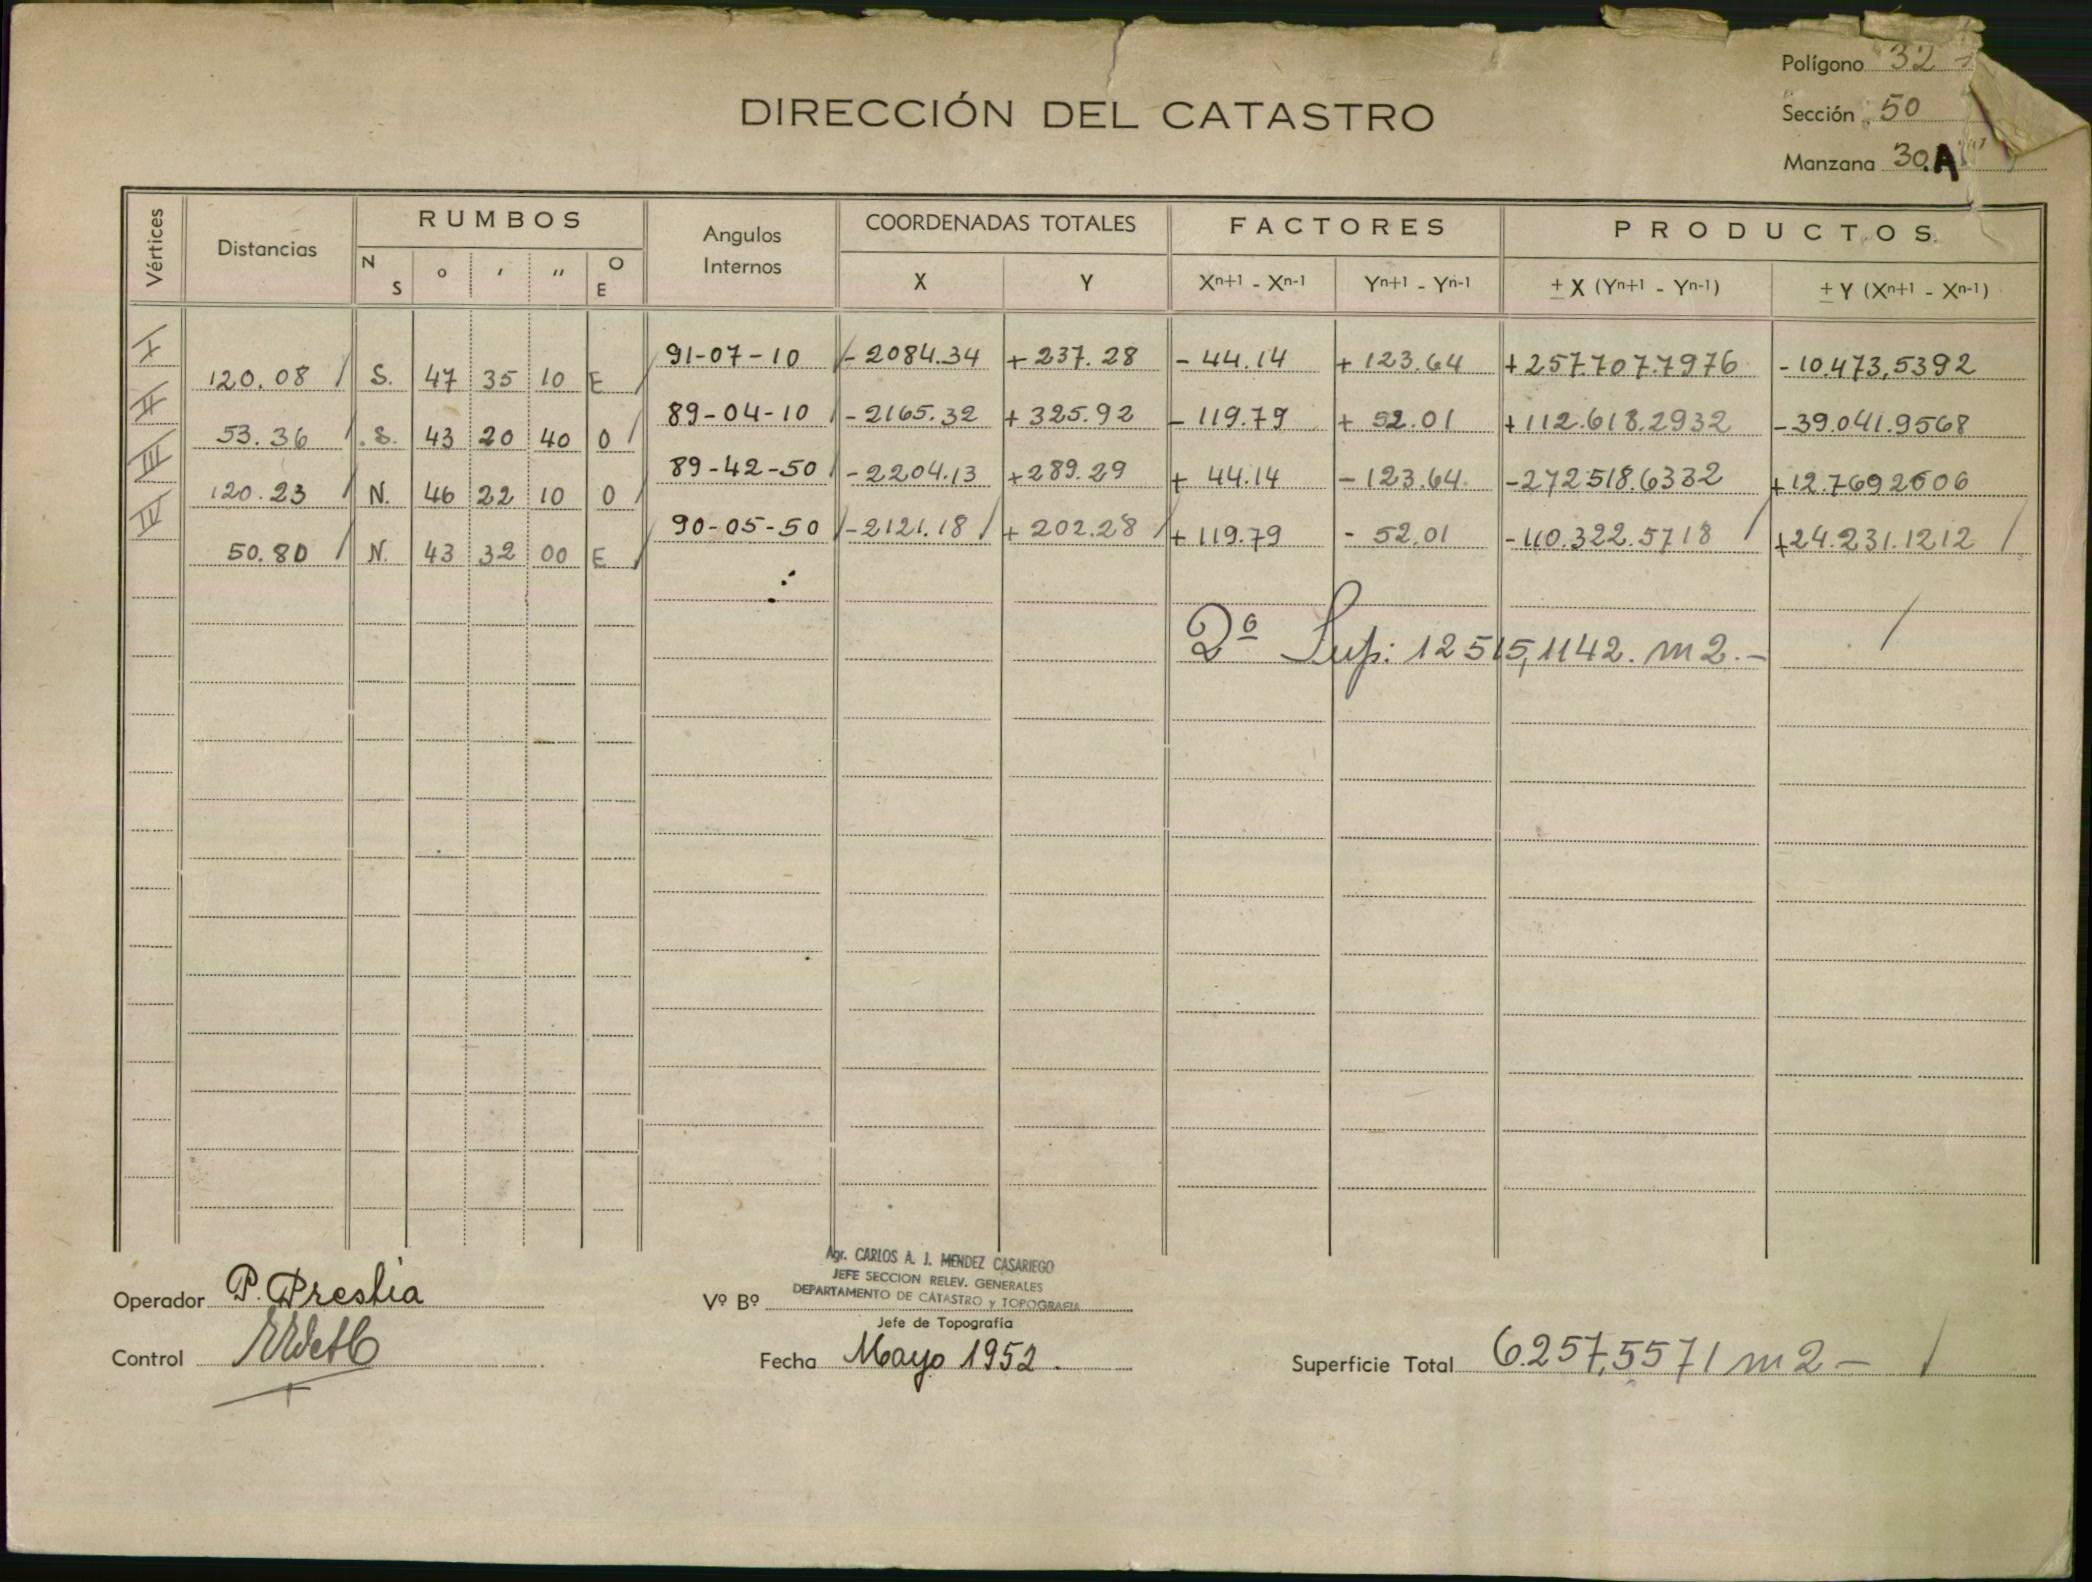 Polígono 32
DIRECCIÓN DEL CATASTRO
Sección 50
Manzana 30.A
Vértices Distancias RUMBOS Angulos Internos COORDENADAS TOTALES FACTORES PRODUCTOS
N S ° ' " O E X Y Xn+1 - Xn-1 Yn+1 - Yn-1 ± X (Yn+1 - Yn-1) ± Y (Xn+1 - Xn-1)
I 91-07-10 - 2084.34 + 237.28 - 44.14 + 123.64 + 257.707.7976 - 10.473,5392
120.08 S. 47 35 10 E
II 89-04-10 - 2165.32 + 325.92 - 119.79 + 52.01 + 112.618.2932 - 39.041.9568
53.36 S. 43 20 40 O
III 89-42-50 - 2204.13 + 289.29 + 44.14 - 123.64 - 272518.6332 + 12.7692606
120.23 N. 46 22 10 O
IV 90-05-50 - 2121.18 + 202.28 + 119.79 - 52.01 - 110.322.5718 + 24.231.1212
50.80 N. 43 32 00 E
2ª Sup: 12515,1142. m2.-
Agr. CARLOS A. J. MENDEZ CASARIEGO
JEFE SECCION RELEV. GENERALES
DEPARTAMENTO DE CATASTRO y TOPOGRAFIA
Operador P. Prestia Vº Bº
Jefe de Topografía
Control Fecha Mayo 1952. Superficie Total 6.257,5571 m2 -